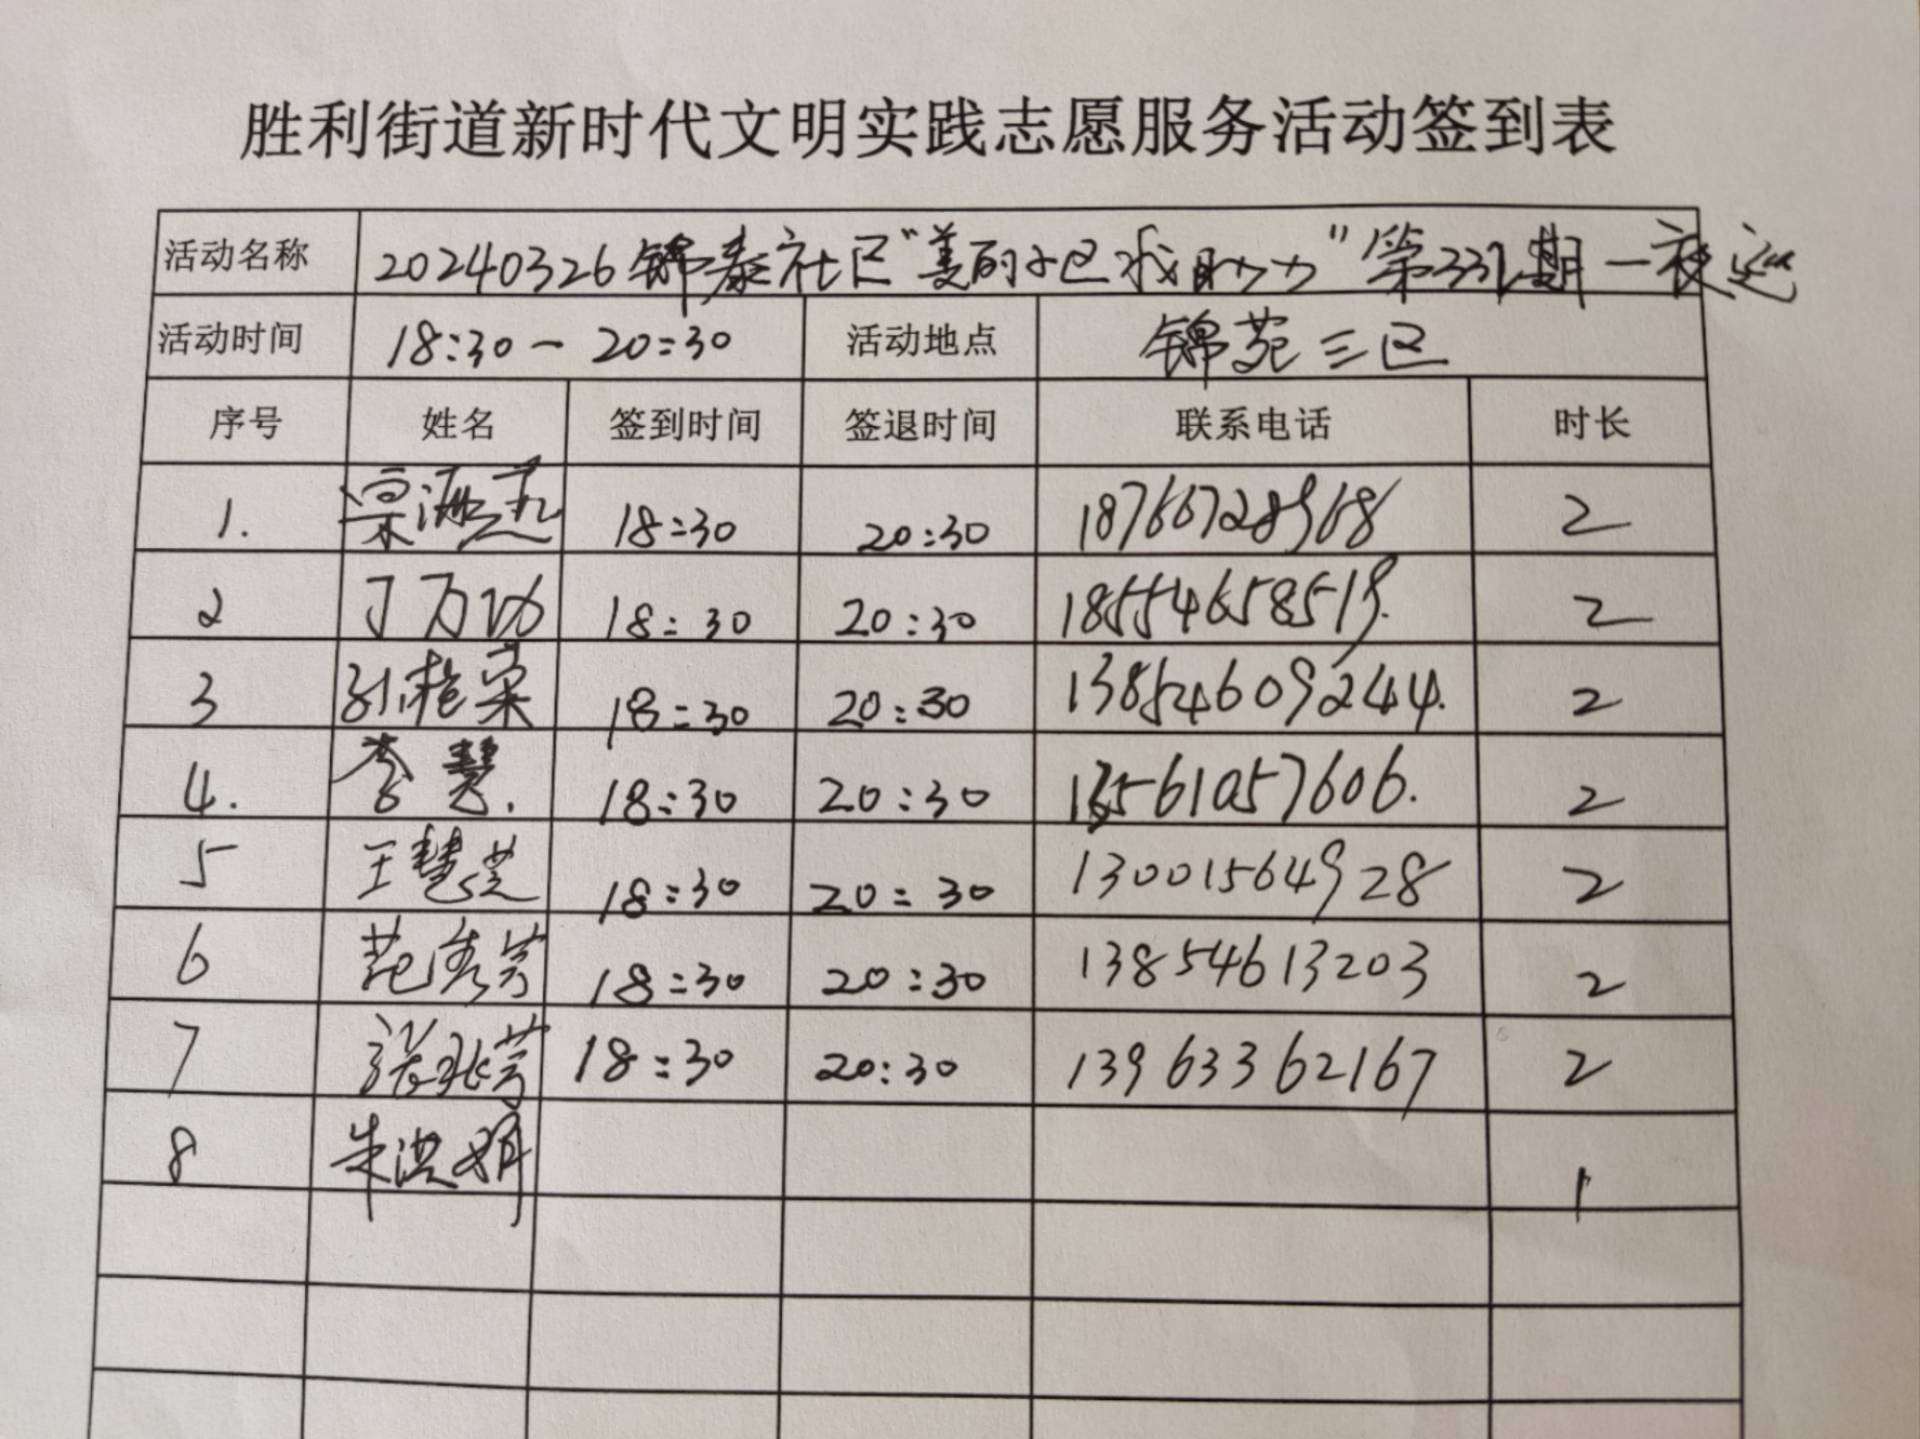 胜利街道新时代文明实践志愿服务活动签到表
活动名称 20240326锦泰社区“美丽小区我助力”第332期一夜巡
活动时间 18:30-20:30 活动地点 锦苑三区
序号 姓名 签到时间 签退时间 联系电话 时长
1. 18:30 20:30 18766728968 2
2 丁万功 18:30 20:30 18554658519. 2
3 18:30 20:30 13854609244. 2
4. 李慧. 18:30 20:30 13561057606. 2
5 王慧芝 18:30 20:30 13001564928 2
6 范秀芳 18:30 20:30 13854613203 2
7 张秋芳 18:30 20:30 13963362167 2
8 朱洪娟 1